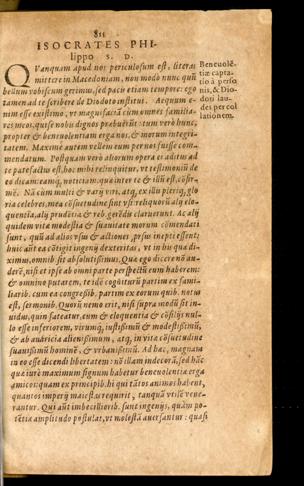 811
ISOCRATES PHI-
lippo S. D.
QVanquam apud nos periculosum est, literas
mittere in Macedoniam, non modo nunc quũ
bellum vobiscum gerimus, sed pacis etiam tempore: ego
tamen ad te scribere de Diodoto institui. Aequum e-
nim esse existimo, vt magnifaciã cum omnes familia-
res meos, quise nobis dignos præbuerũt: tum verò hunc,
propter & beneuolentiam erga nos, & morum integri-
tatem. Maxime autem vellem eum per nos fuisse com-
mendatum. Postquam verò aliorum opera
te patefactus est, hoc mihi relinquitur, vt testimoniũ de
eo dicam: eamq́, notitiam, quæ inter te & illũ est, cõfir-
mẽ. Nã cum multi & varij viri, atq́, ex illis
ria celebres, mea cõsuetudine sint vsi: reliquorũ alij elo-
quentia, alij prudẽtia & reb. gerẽdis claruerunt. Ac alij
quidem vita modestia & suauitate morum cõmendati
sunt, quũ ad alios vsus & actiones
huic aũt ea cõtigit ingenij dexteritas, vt in his
ximus, omnib. sit absolutissimus. Quæ ego dicere nõ au-
derẽ, nisi et ipse ab omni parte perspectũ eum haberem:
& omnino putarem, te idẽ cogniturũ partim ex fami-
liarib. cum ea congressib. partim ex eorum quib. notus
est, sermonib. Quorũ nemo erit, nisi supra modũ sit in-
uidus, quin fateatur, eum & eloquentia & cõsilijs nul-
lo esse inferiorem, virumq́, iustissimũ & modestissimũ,
& ab auaricia alienissimum, atq́, in vita cõsuetudine
suauissimũ hominẽ, & vrbanissimũ. Ad hæc, magnam
in eo esse dicendi libertatem: nõ illam indecorã, sed hãc
quæ iurè maximum signum habetur beneuolentiæ erga
amicos: quam ex principib. hi qui tãtos animos habent,
quantos imperij maiestas requirit, tanquã vtilẽ vene-
rantur. Qui aũt imbecilliorib. sunt ingenijs, quàm po-
tẽtia amplitudo postulat, vt molestã auersantur: quasi
Beneuolẽ-
tiæ capta-
tio à perso
nis, & Dio
doti lau-
des per col
lationem.